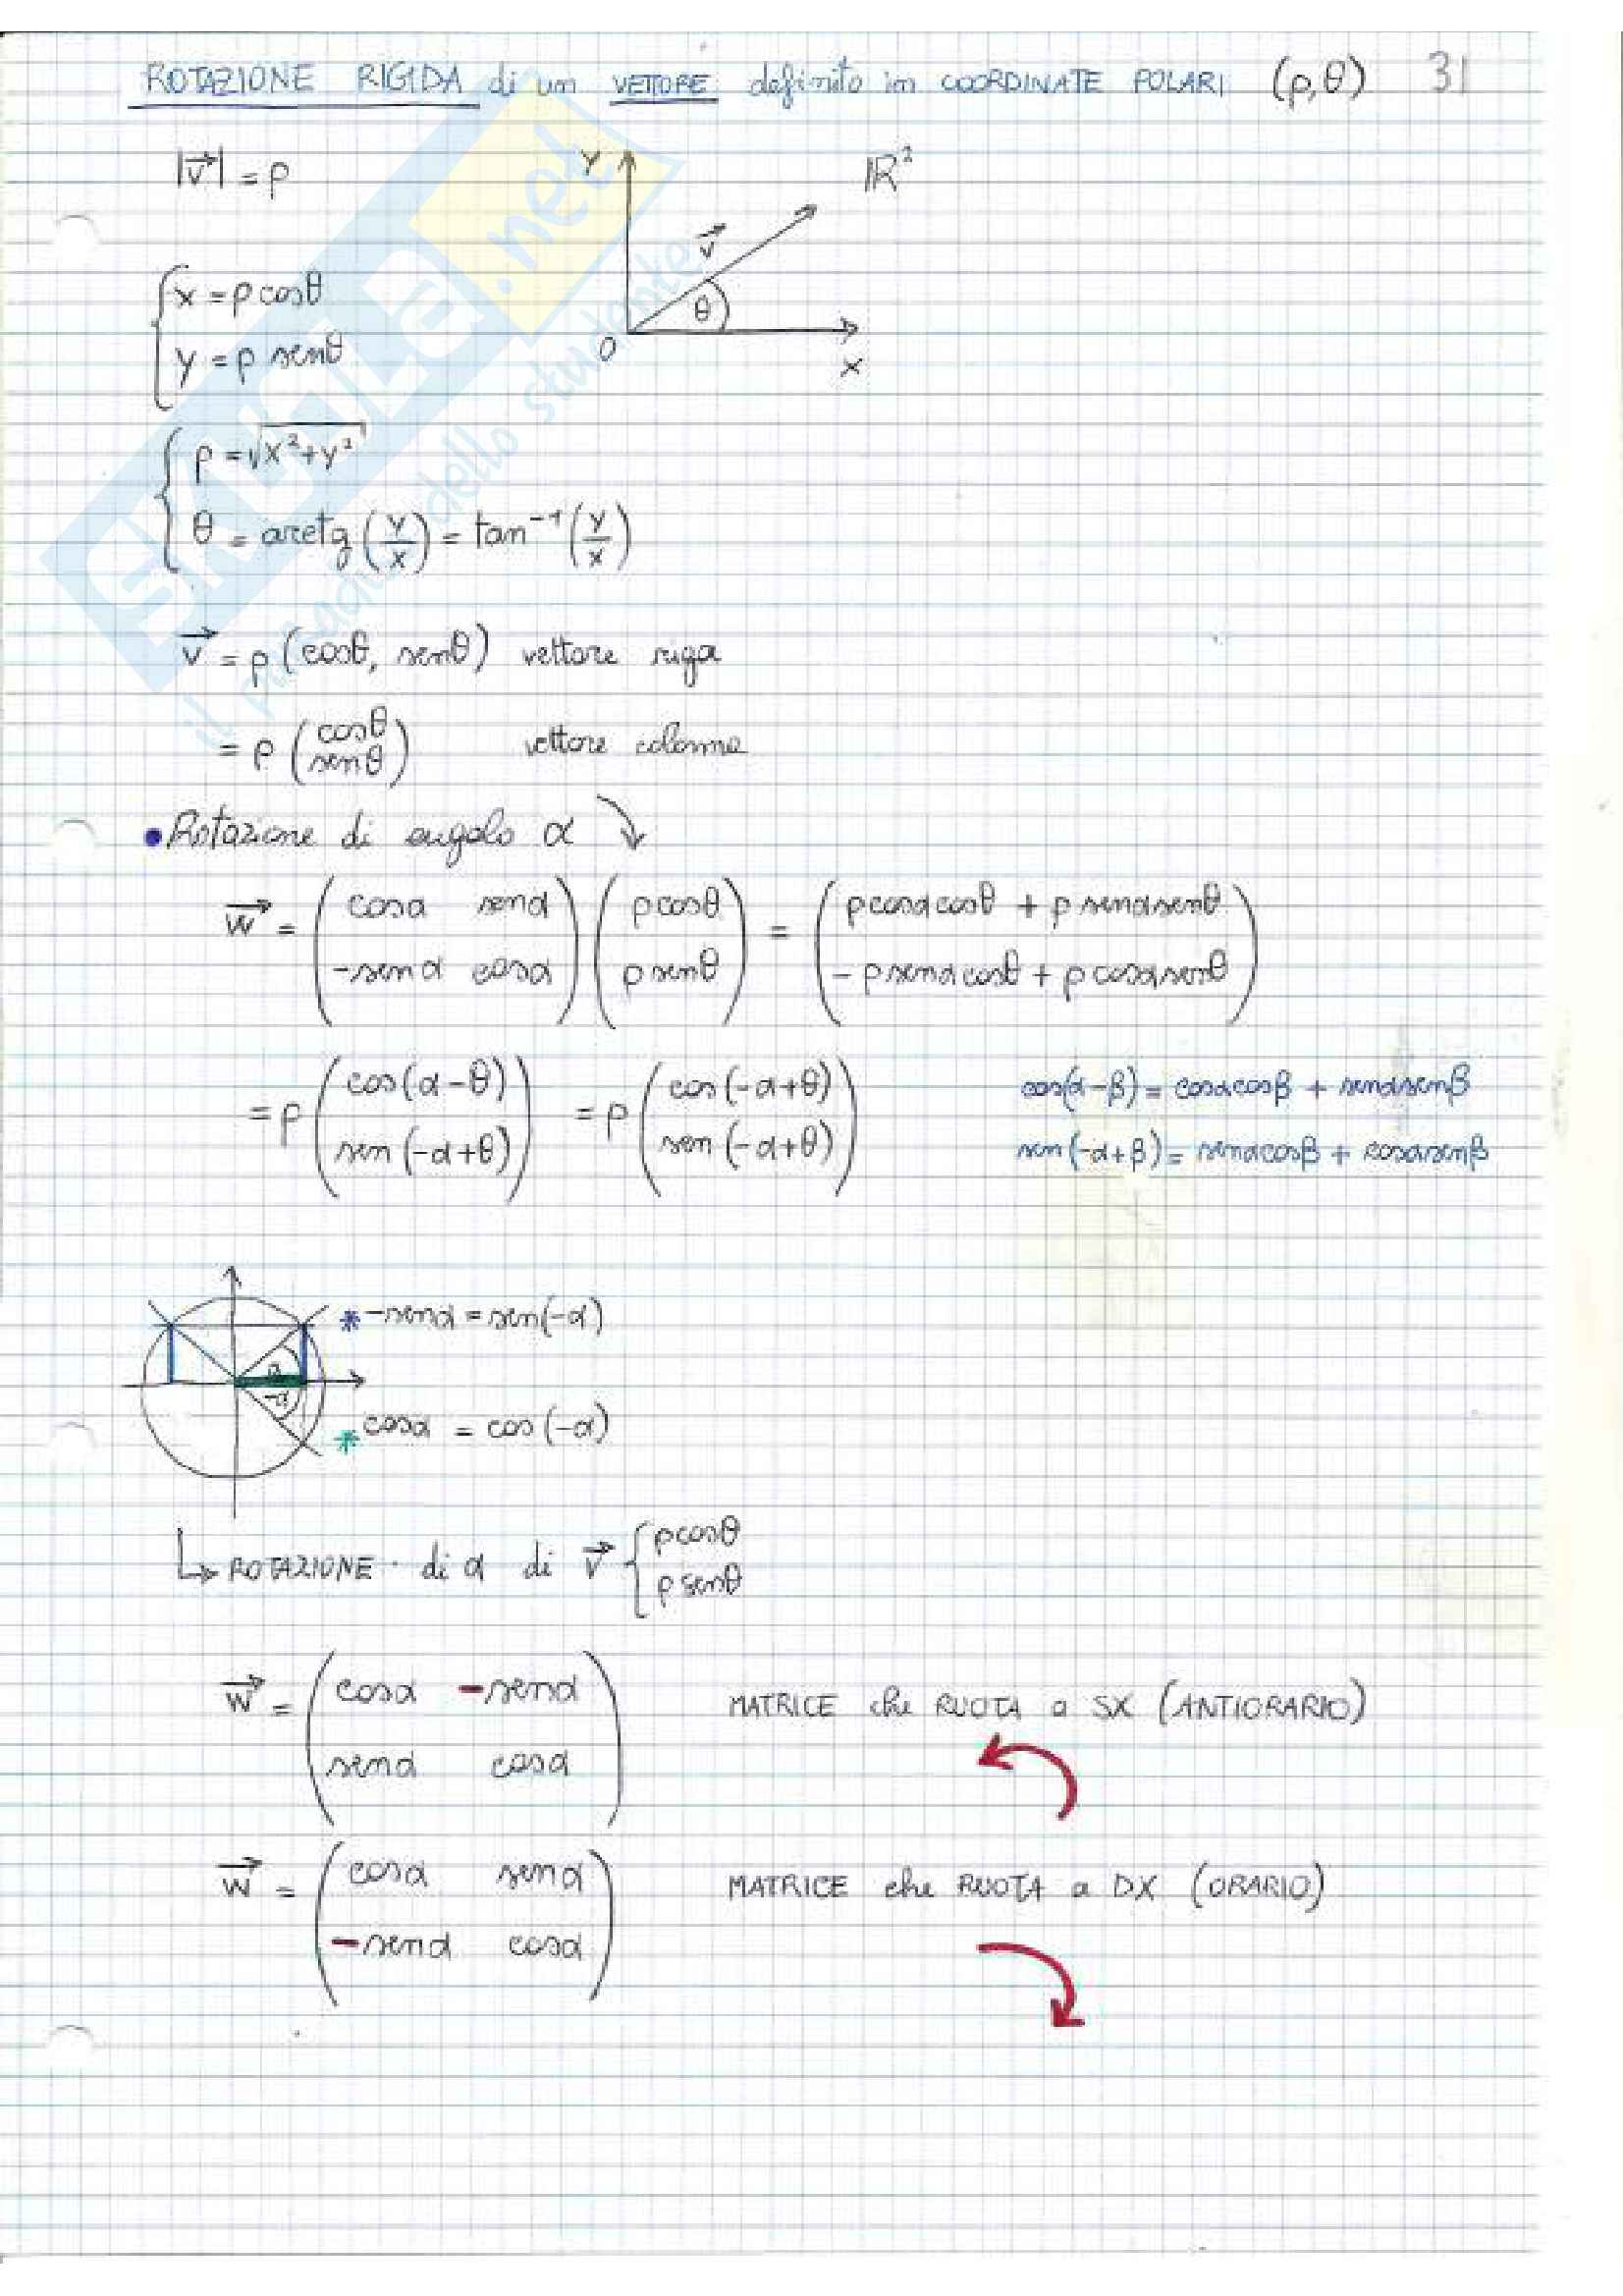 ROTAZIONE RIGIDA di un VETTORE definito in COORDINATE POLARI (ρ,θ) 31
|v⃗| = ρ
Y ℝ²
v⃗
θ
O
X
{ x = ρ cosθ
y = ρ senθ
{ ρ = √x²+y²
θ = arctg (y/x) = tan⁻¹ (y/x)
v⃗ = ρ (cosθ, senθ) vettore riga
= ρ (cosθ
senθ) vettore colonna
• Rotazione di angolo α
w⃗ = (cosα senα
-senα cosα) (ρcosθ
ρ senθ) = (ρcosαcosθ + ρ senαsenθ
- ρsenαcosθ + ρ cosαsenθ)
= ρ (cos(α-θ)
sen (-α+θ)) = ρ (cos (-α+θ)
sen (-α+θ))
cos(α-β) = cosαcosβ + senαsenβ
sen (-α+β) = senαcosβ + cosαsenβ
* -senα = sen(-α)
α
-α
* cosα = cos (-α)
↳ ROTAZIONE di α di v⃗ { ρcosθ
ρ senθ
w⃗ = (cosα -senα
senα cosα) MATRICE che RUOTA a SX (ANTIORARIO)
w⃗ = (cosα senα
-senα cosα) MATRICE che RUOTA a DX (ORARIO)
SKUOLA.net
il paradiso dello studente